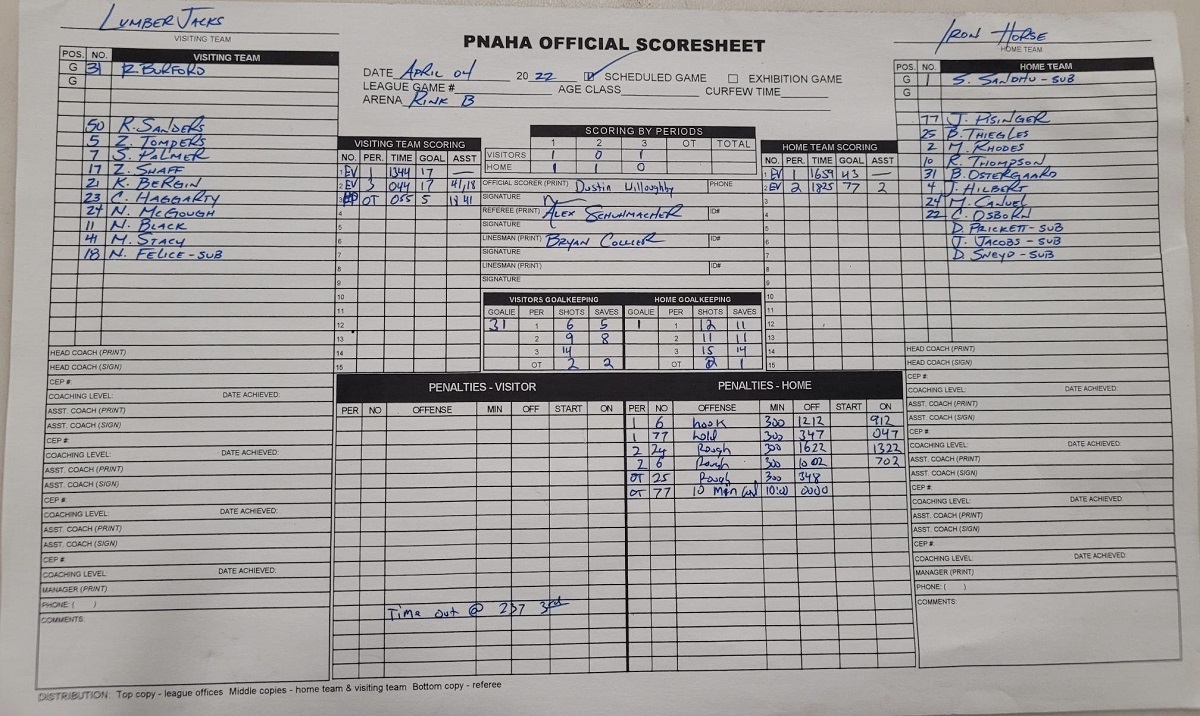 LUMBER JACKS
VISITING TEAM
IRON HORSE
HOME TEAM
PNAHA OFFICIAL SCORESHEET
DATE APRIL 04 2022 SCHEDULED GAME EXHIBITION GAME
LEAGUE GAME # AGE CLASS CURFEW TIME
ARENA RINK B
POS. NO. VISITING TEAM
G 31 R. BURFORD
G
50 R. SANDERS
5 Z. TOMPERS
7 S. PALMER
17 Z. SHAFF
21 K. BERGIN
23 C. HAGGARTY
24 N. MCGOUGH
11 N. BLACK
41 M. STACY
18 N. FELICE - SUB
HEAD COACH (PRINT)
HEAD COACH (SIGN)
CEP #
COACHING LEVEL: DATE ACHIEVED:
ASST. COACH (PRINT)
ASST. COACH (SIGN)
CEP #
COACHING LEVEL: DATE ACHIEVED:
ASST. COACH (PRINT)
ASST. COACH (SIGN)
CEP #
COACHING LEVEL: DATE ACHIEVED:
ASST. COACH (PRINT)
ASST. COACH (SIGN)
CEP #
COACHING LEVEL: DATE ACHIEVED:
MANAGER (PRINT)
PHONE ( )
COMMENTS:
VISITING TEAM SCORING
NO. PER. TIME GOAL ASST
1 EV 1 1344 17 —
2 EV 3 044 17 41,18
3 OT 055 5 18 41
4
5
6
7
8
9
10
11
12
13
14
15
SCORING BY PERIODS
1 2 3 OT TOTAL
VISITORS 1 0 1
HOME 1 1 0
OFFICIAL SCORER (PRINT) Dustin Willoughby PHONE
SIGNATURE
REFEREE (PRINT) ALEX SCHUHMACHER ID#
SIGNATURE
LINESMAN (PRINT) BRYAN COLLIER ID#
SIGNATURE
LINESMAN (PRINT) ID#
SIGNATURE
VISITORS GOALKEEPING HOME GOALKEEPING
GOALIE PER SHOTS SAVES GOALIE PER SHOTS SAVES
31 1 6 5 1 1 12 11
2 9 8 2 11 11
3 14 3 15 14
OT 2 2 OT 2 1
HOME TEAM SCORING
NO. PER. TIME GOAL ASST
1 EV 1 1659 43 —
2 EV 2 1825 77 2
3
4
5
6
7
8
9
10
11
12
13
14
15
POS. NO. HOME TEAM
G 1 S. SANDHU - SUB
G
77 J. PISINGER
25 B. THIEGLES
2 M. RHODES
10 R. THOMPSON
31 B. OSTERGAARD
4 J. HILBERT
24 M. CANUEL
22 C. OSBORN
D. PRICKETT - SUB
J. JACOBS - SUB
D. SNEYD - SUB
HEAD COACH (PRINT)
HEAD COACH (SIGN)
CEP #
COACHING LEVEL: DATE ACHIEVED:
ASST. COACH (PRINT)
ASST. COACH (SIGN)
CEP #
COACHING LEVEL: DATE ACHIEVED:
ASST. COACH (PRINT)
ASST. COACH (SIGN)
CEP #
COACHING LEVEL: DATE ACHIEVED:
ASST. COACH (PRINT)
ASST. COACH (SIGN)
CEP #
COACHING LEVEL: DATE ACHIEVED:
MANAGER (PRINT)
PHONE: ( )
COMMENTS:
PENALTIES - VISITOR
PER NO OFFENSE MIN OFF START ON
Time out @ 237 3rd
PENALTIES - HOME
PER NO OFFENSE MIN OFF START ON
1 6 hook 300 1212 912
1 77 hold 300 347 047
2 24 Rough 300 1622 1322
2 6 Rough 300 1002 702
OT 25 Rough 300 348
OT 77 10 Min 10:00 0000
DISTRIBUTION: Top copy - league offices Middle copies - home team & visiting team Bottom copy - referee